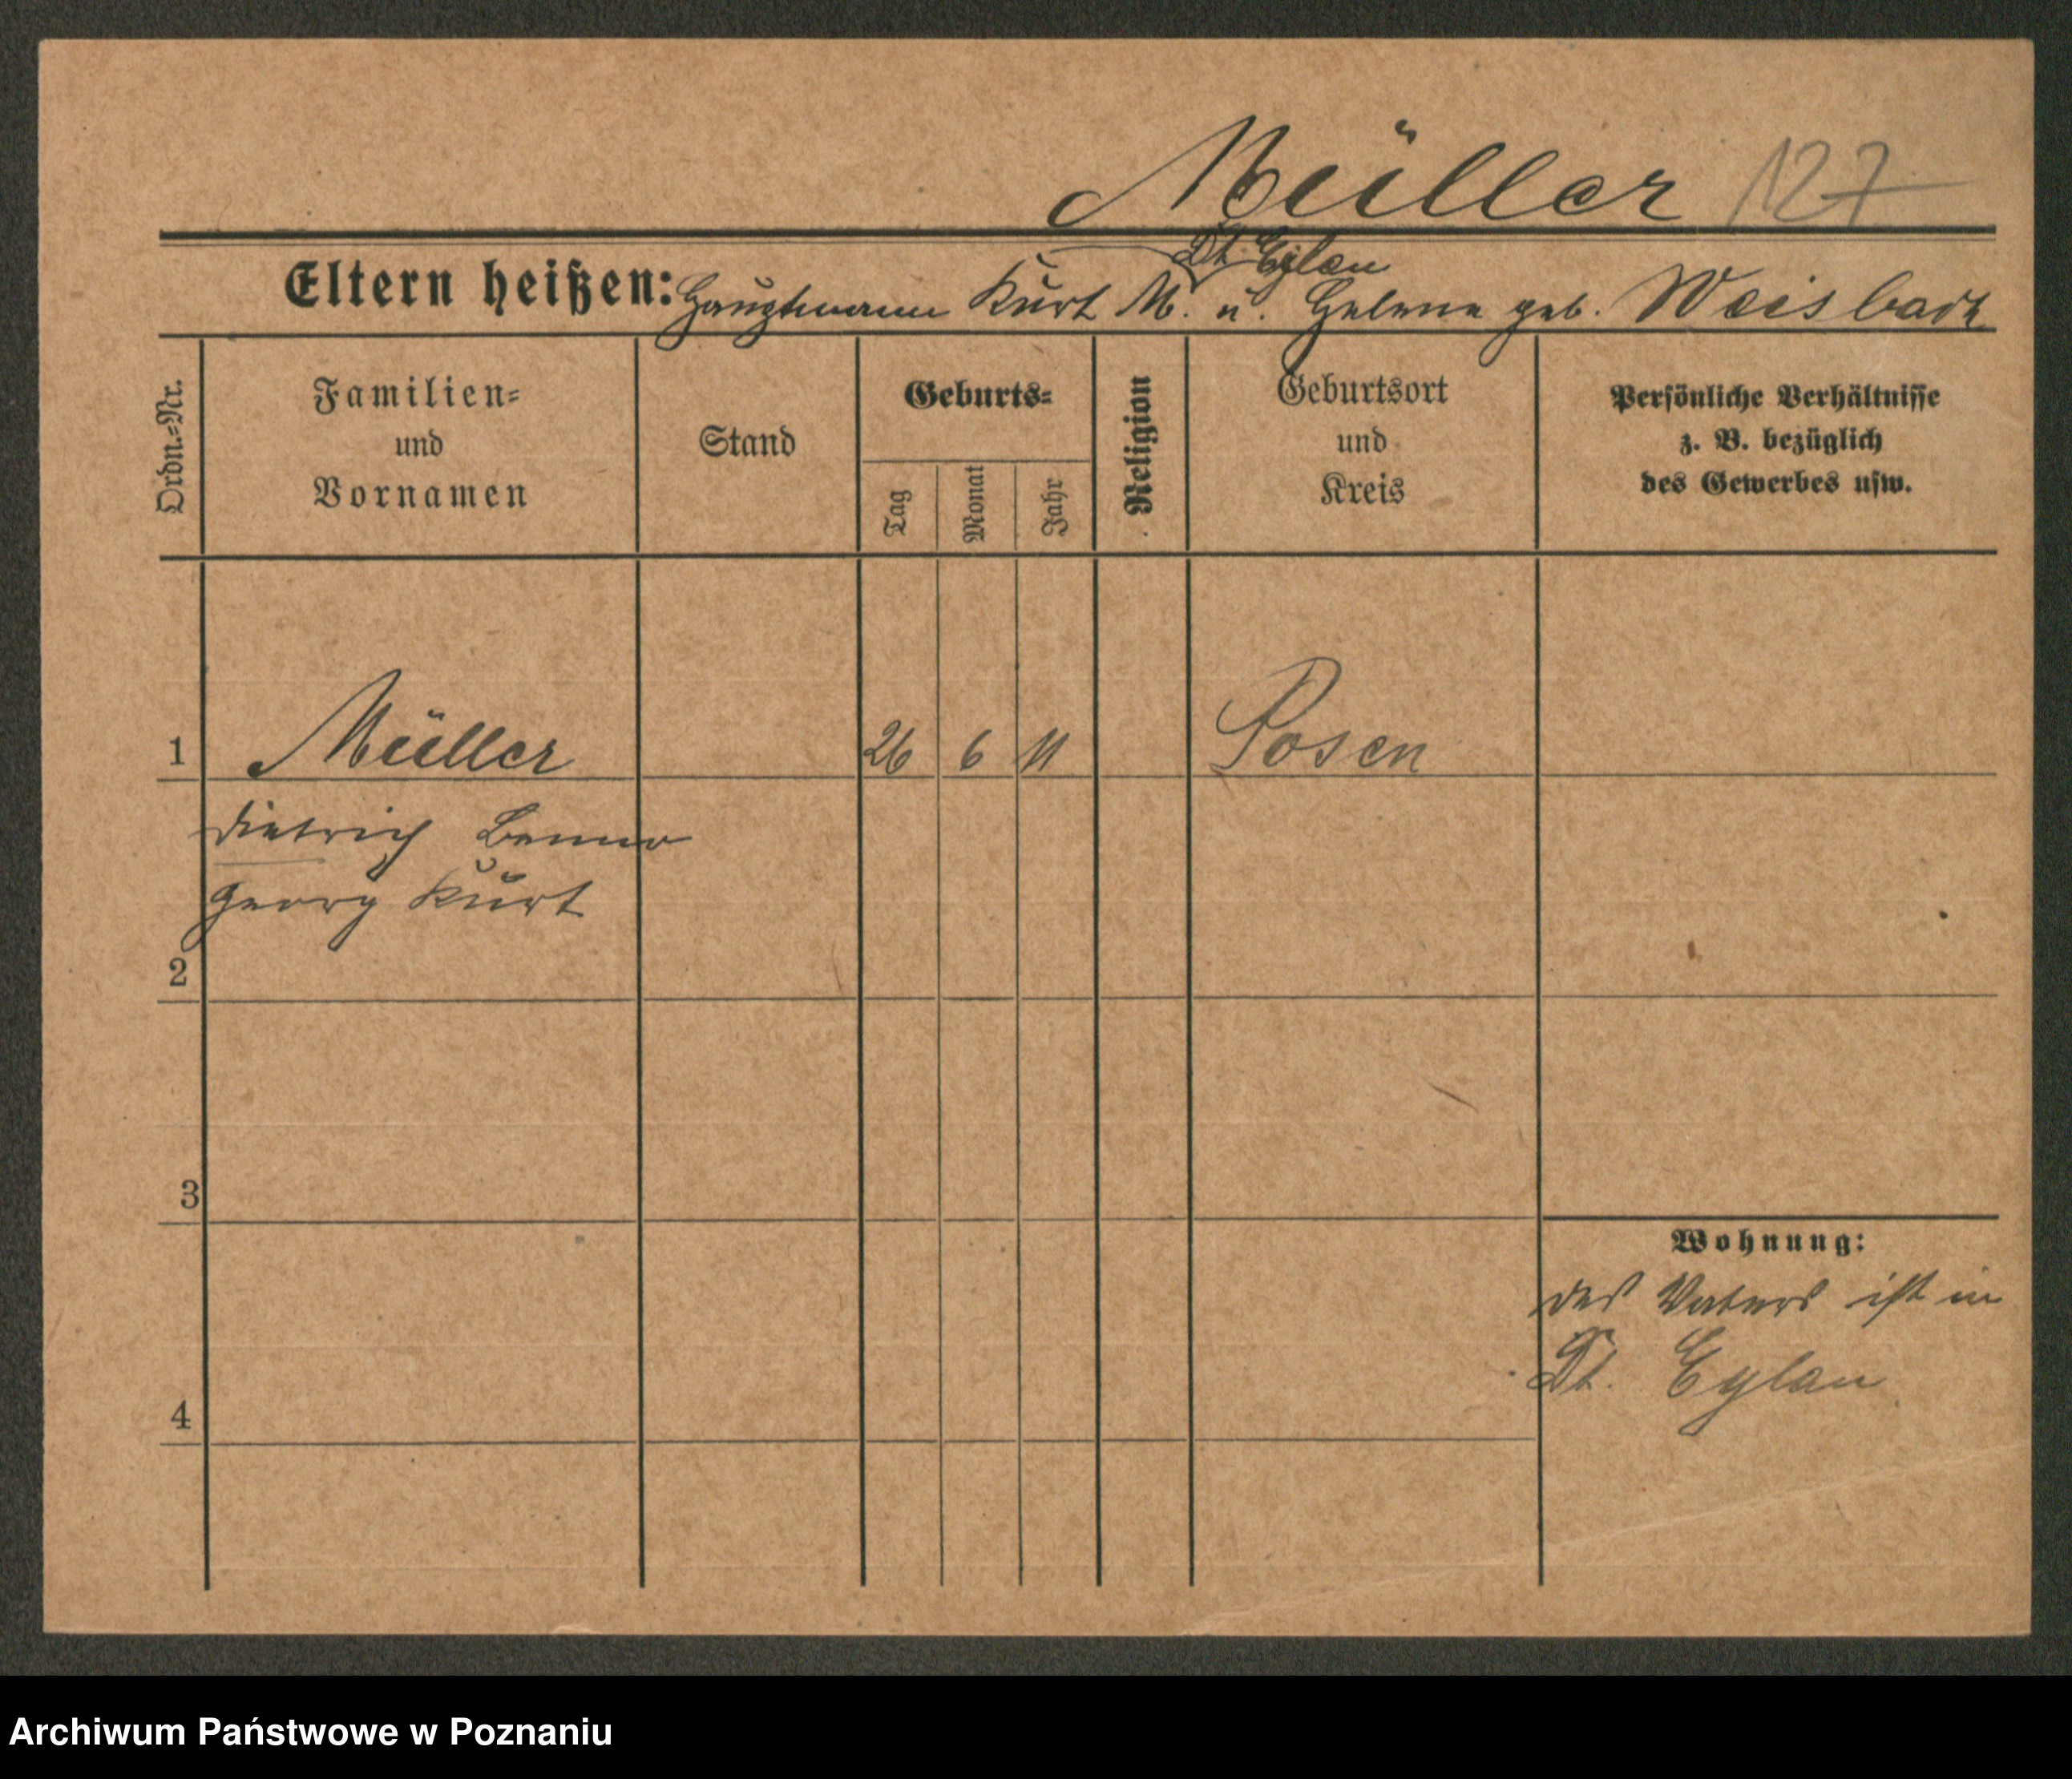 Müller 127
Dt. Eylau
Eltern heißen: Hauptmann Kurt M. u. Helene geb. Weisbach
Ordn.-Nr.
Familien-
und
Vornamen
Stand
Geburts-
Tag
Monat
Jahr
Religion
Geburtsort
und
Kreis
Persönliche Verhältnisse
z. B. bezüglich
des Gewerbes usw.
1 Müller 26 6 11 Posen
Dietrich Benno
Georg Kurt
2
3
Wohnung:
des Vaters ist in
Dt. Eylau
4
Archiwum Państwowe w Poznaniu